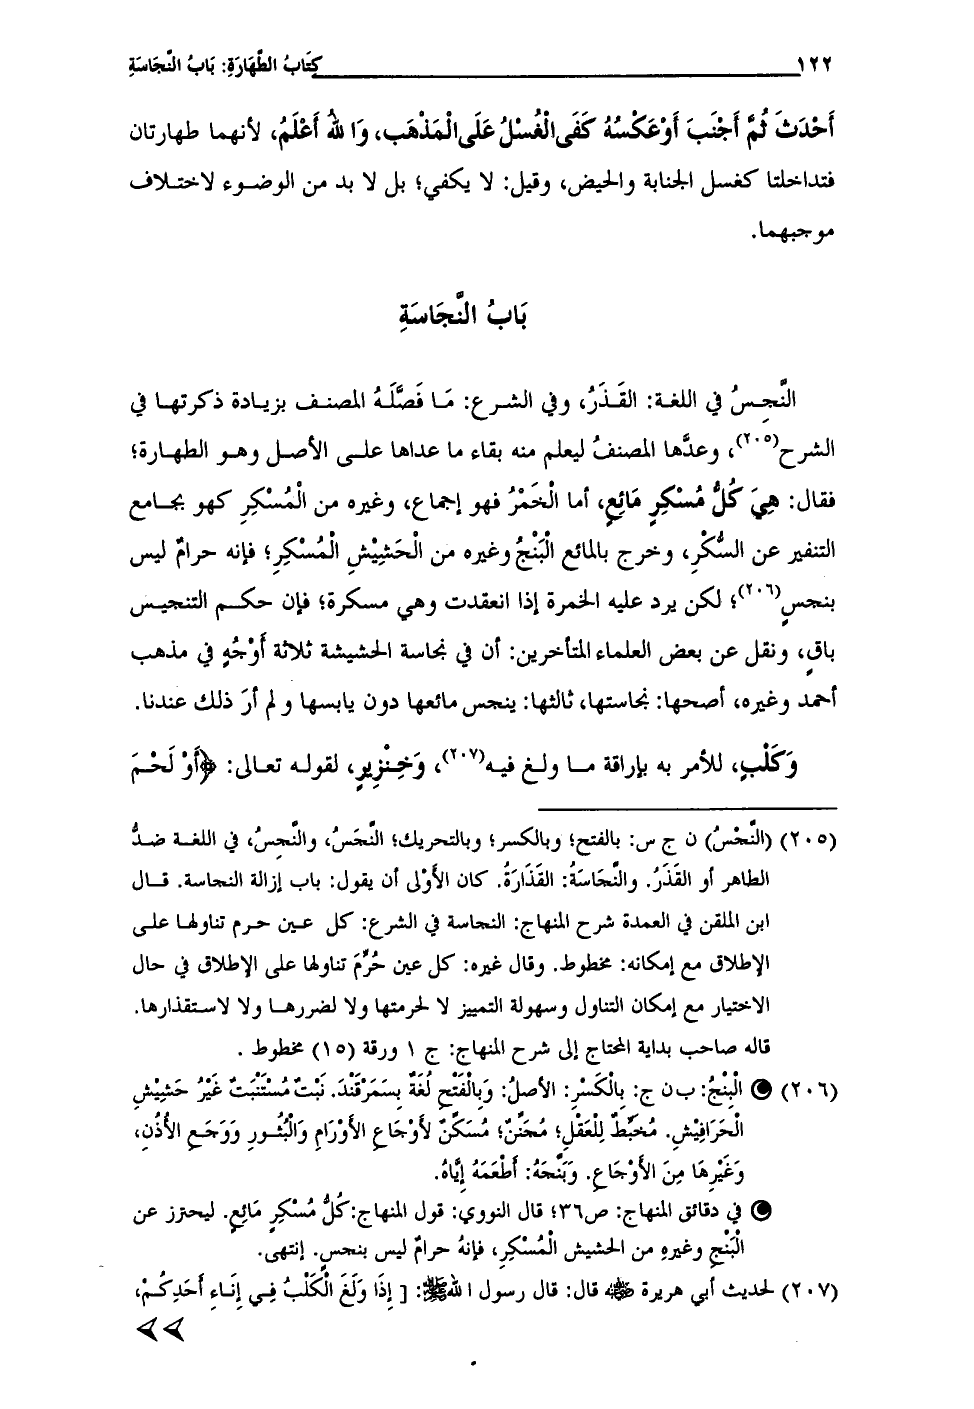 ١٢٢ كِتَابُ الطَّهَارَةِ: بَابُ النَّجَاسَةِ
أَحْدَثَ ثُمَّ أَجْنَبَ أَوْ عَكْسُهُ كَفَى الْغُسْلُ عَلَى الْمَذْهَبِ، وَاللهُ أَعْلَمُ، لأنهما طهارتان
فتداخلتا كغسل الجنابة والحيض، وقيل: لا يكفي؛ بل لا بد من الوضوء لاختلاف
موجبهما.
بَابُ النَّجَاسَةِ
النَّجِسُ في اللغة: القَذَرُ، وفي الشرع: مَا فَصَّلَهُ المصنف بزيادة ذكرتها في
الشرح(٢٠٥)، وعدَّها المصنفُ ليعلم منه بقاء ما عداها على الأصل وهو الطهارة؛
فقال: هِيَ كُلُّ مُسْكِرٍ مَائِعٍ، أما الْخَمْرُ فهو إجماع، وغيره من الْمُسْكِرِ كهو بجامع
التنفير عن السُّكْرِ، وخرج بالمائع الْبَنْجُ وغيره من الْحَشِيْشِ الْمُسْكِرِ؛ فإنه حرامٌ ليس
بنجسٍ(٢٠٦)؛ لكن يرد عليه الخمرة إذا انعقدت وهي مسكرة؛ فإن حكم التنجيس
باقٍ، ونقل عن بعض العلماء المتأخرين: أن في نجاسة الحشيشة ثلاثة أَوْجُهٍ في مذهب
أحمد وغيره، أصحها: نجاستها، ثالثها: ينجس مائعها دون يابسها ولم أرَ ذلك عندنا.
وَكَلْبٍ، للأمر به بإراقة ما ولغ فيه(٢٠٧)، وَخِنْزِيرٍ، لقوله تعالى: ﴿أَوْ لَحْمَ
(٢٠٥) (النَّجْسُ) ن ج س: بالفتح؛ وبالكسر؛ وبالتحريك؛ النَّجَسُ، والنَّجِسُ، في اللغة ضدُّ
الطاهر أو القَذَرُ. والنَّجَاسَةُ: القَذَارَةُ. كان الأَوْلى أن يقول: باب إزالة النجاسة. قال
ابن الملقن في العمدة شرح المنهاج: النجاسة في الشرع: كل عين حرم تناولها على
الإطلاق مع إمكانه: مخطوط. وقال غيره: كل عين حُرِّمَ تناولها على الإطلاق في حال
الاختيار مع إمكان التناول وسهولة التمييز لا لحرمتها ولا لضررها ولا لاستقذارها.
قاله صاحب بداية المحتاج إلى شرح المنهاج: ج ١ ورقة (١٥) مخطوط .
(٢٠٦) الْبِنْجُ: ب ن ج: بِالْكَسْرِ: الأصلُ: وَبِالْفَتْحِ لُغَةٌ بِسَمَرْقَنْدَ. نَبْتٌ مُسْتَنْبَتٌ غَيْرُ حَشِيْشِ
الْحَرَافِيْشِ. مُخَبِّطٌ لِلْعَقْلِ؛ مُجَنِّنٌ؛ مُسَكِّنٌ لأَوْجَاعِ الأَوْرَامِ وَالْبُثُورِ وَوَجَعِ الأُذُنِ،
وَغَيْرِهَا مِنَ الأَوْجَاعِ. وَبَنَّجَهُ: أَطْعَمَهُ إِيَّاهُ.
في دقائق المنهاج: ص٣٦؛ قال النووي: قول المنهاج: كُلُّ مُسْكِرٍ مَائِعٍ. ليحترز عن
الْبَنْجِ وغيرهِ من الحشيش الْمُسْكِرِ، فإنهُ حرامٌ ليس بنجسٍ. إنتهى.
(٢٠٧) لحديث أبي هريرة ﵁ قال: قال رسول الله ﷺ: [ إِذَا وَلَغَ الْكَلْبُ فِي إِنَاءِ أَحَدِكُمْ،